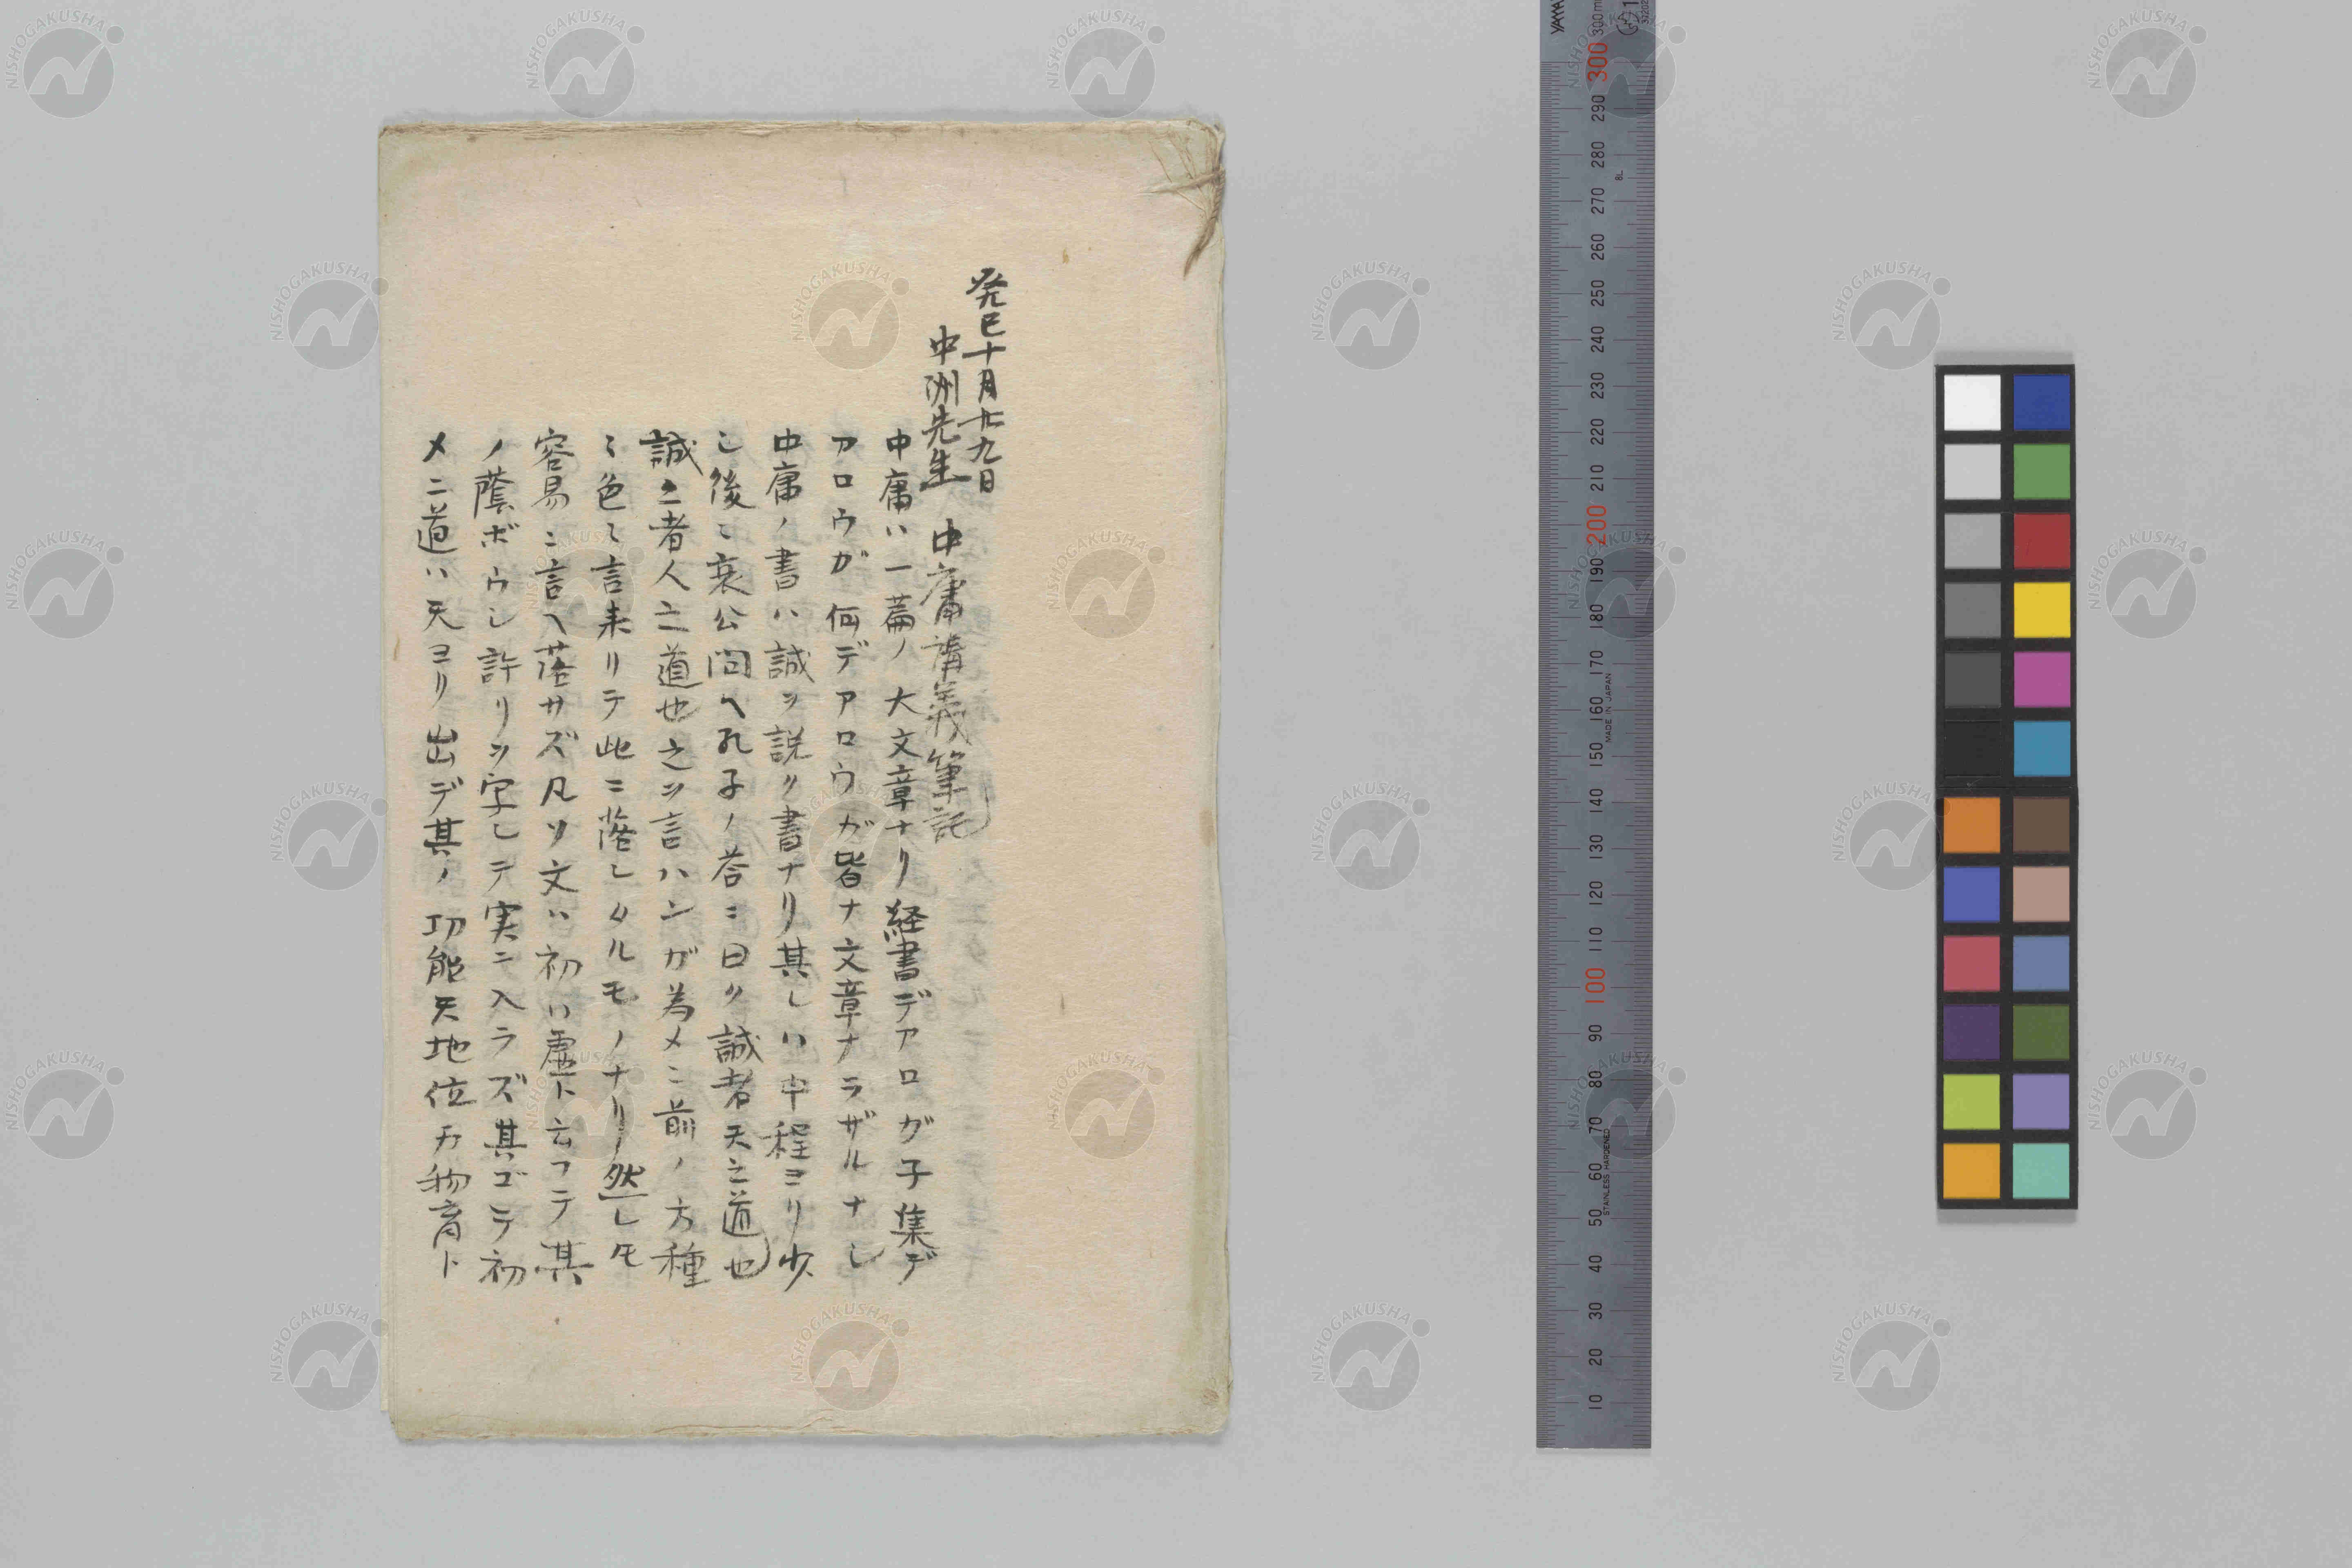 癸巳十月廿九日
中洲先生 中庸講義筆記
中庸ハ一篇ノ大文章ナリ経書デアロガ子集デ
アロウガ何デアロウガ皆ナ文章ナラザルナシ
中庸ノ書ハ誠ヲ説ク書ナリ其レハ中程ヨリ少
シ後ニ哀公問ヘ孔子ノ荅ニ曰ク誠者天之道也
誠之者人之道也之ヲ言ハンガ為メニ前ノ方種
ミ色ミ言来リテ此ニ落シタルモノナリ然レ𪜈
容易ニ言ヘ落サズ凡ソ文ハ初ハ虚ト云フテ其
ノ蔭ボウシ許リヲ字シテ実ニ入ラズ其ゴデ初
メニ道ハ天ヨリ出デ其ノ功能天地位万物育ト
NISHOGAKUSHA
300 290 280 270 260 250 240 230 220 210 200 190 180 170 160 150 140 130 120 110 100 90 80 70 60 50 40 30 20 10
MADE IN JAPAN
STAINLESS HARDENED